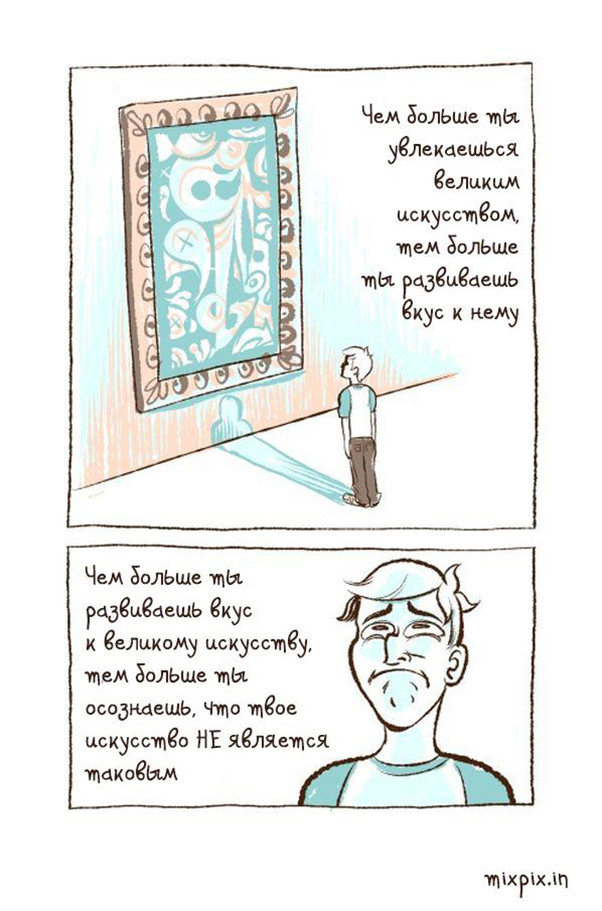 Чем больше ты
увлекаешься
великим
искусством,
тем больше
ты развиваешь
вкус к нему
Чем больше ты
развиваешь вкус
к великому искусству,
тем больше ты
осознаешь, что твое
искусство НЕ является
таковым
mixpix.in